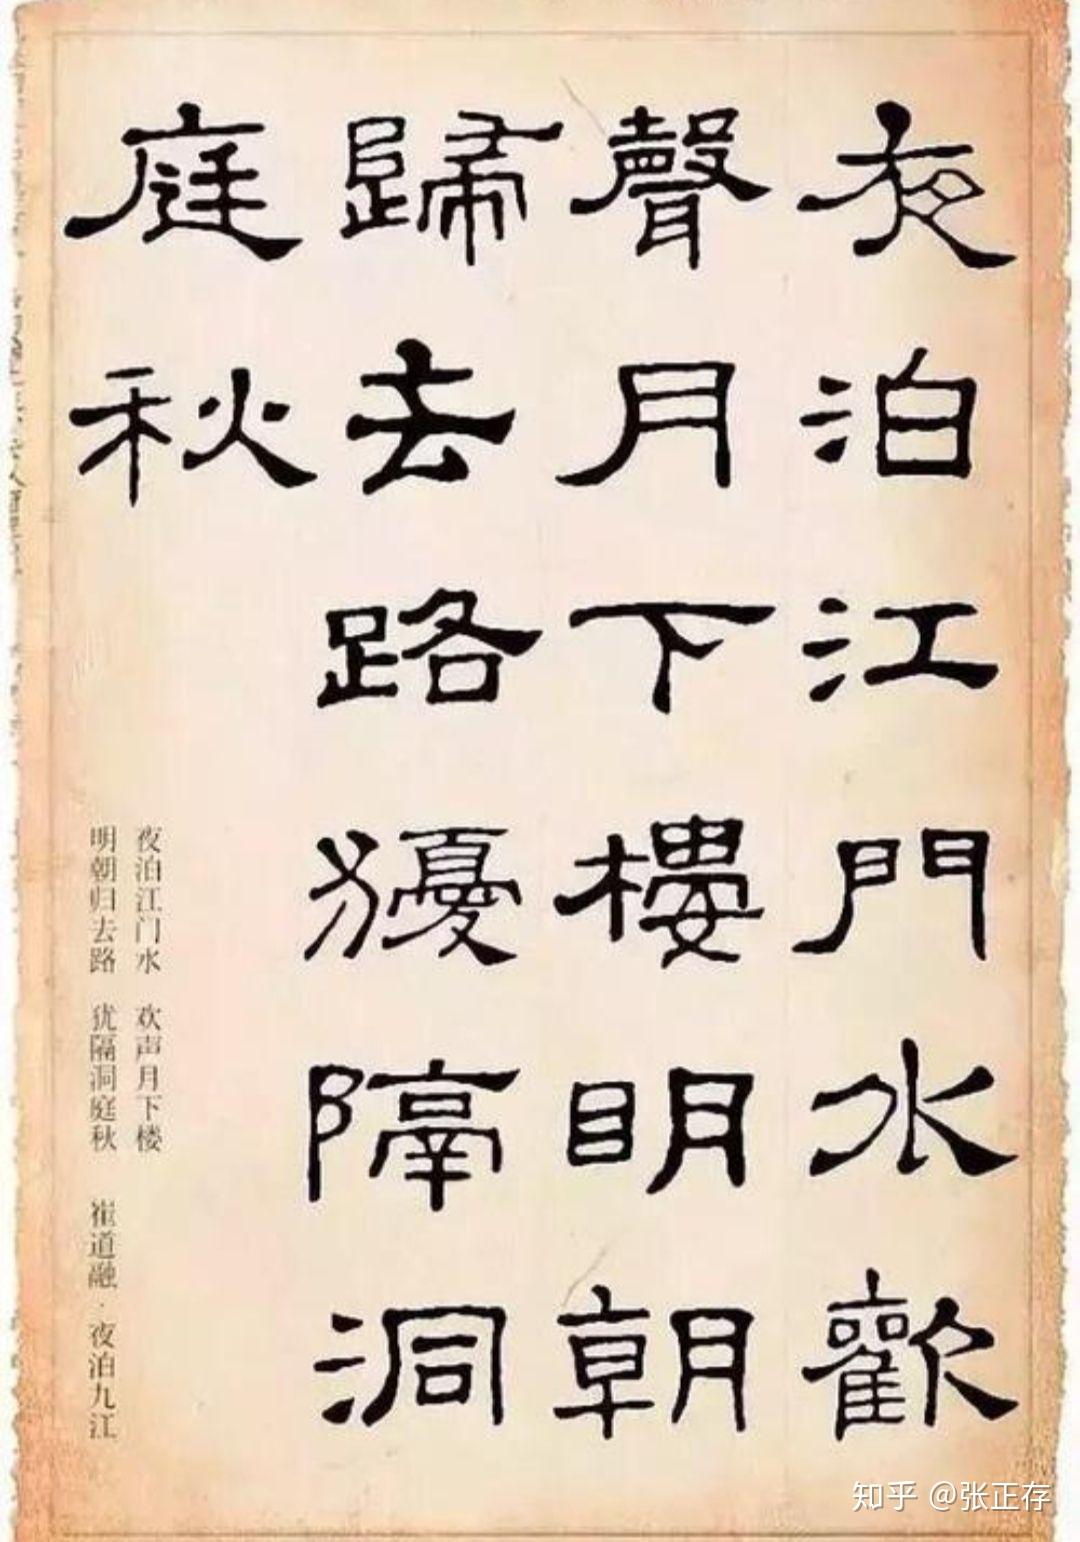 夜泊江門水歡
聲月下樓明朝
歸去路猶隔洞
庭秋
夜泊江门水 欢声月下楼
明朝归去路 犹隔洞庭秋 崔道融·夜泊九江
知乎 @张正存